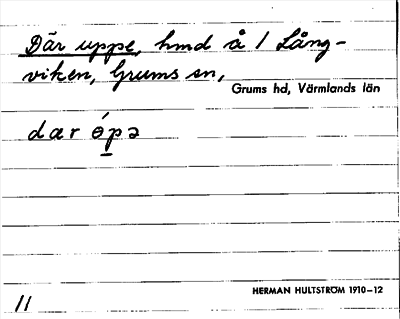 Där uppe, hmd å 1 Lång-
viken, Grums sn,
Grums hd, Värmlands län
dær ɵ́pə
HERMAN HULTSTRÖM 1910–12
11